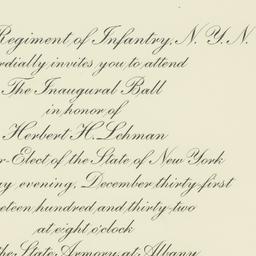 Regiment of Infantry, N. Y. N.
rdially invites you to attend
The Inaugural Ball
in honor of
Herbert H. Lehman
r-Elect of the State of New York
ay evening, December thirty-first
eteen hundred and thirty-two
at eight o'clock
the State Armory at Albany